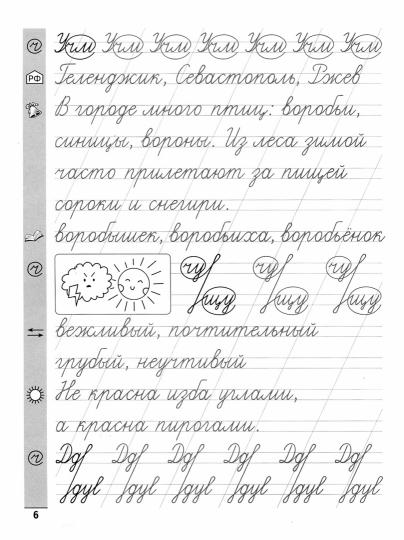 Учи Учи Учи Учи Учи Учи Учи
РФ Геленджик, Севастополь, Ржев
В городе много птиц: воробьи,
синицы, вороны. Из леса зимой
часто прилетают за пищей
сороки и снегири.
воробышек, воробьиха, воробьёнок
чу чу чу
щу щу щу
вежливый, почтительный
грубый, неучтивый
Не красна изба углами,
а красна пирогами.
6